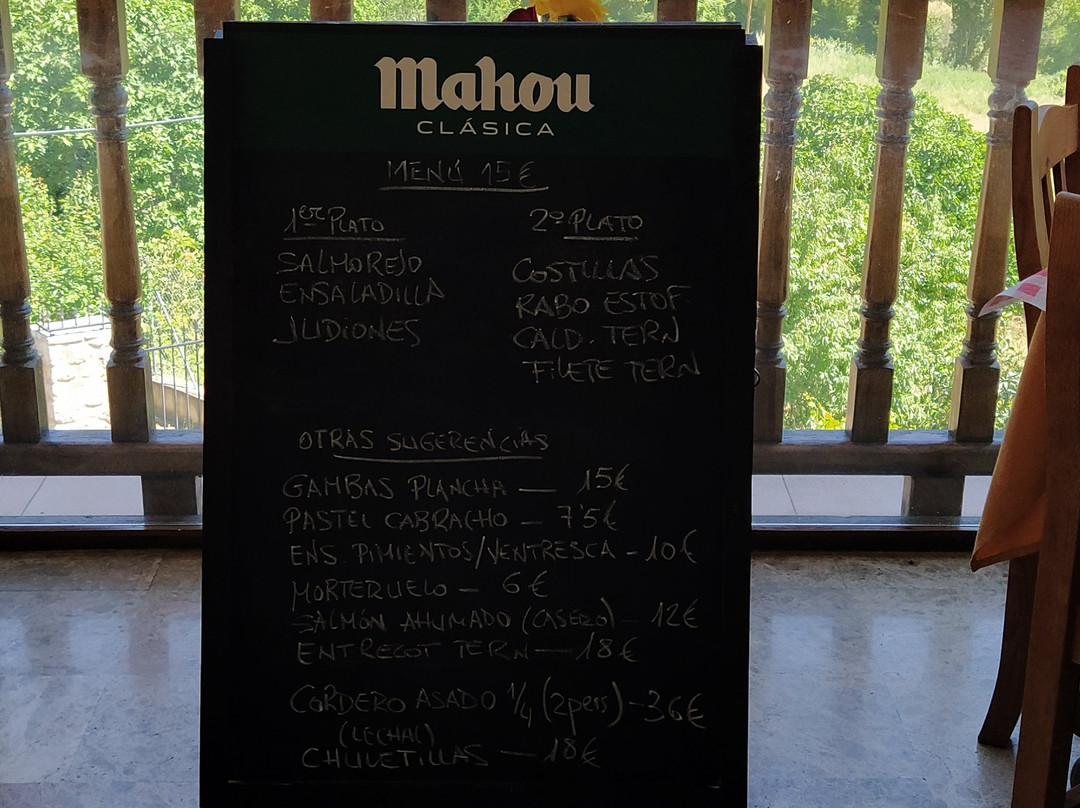 Mahou
CLÁSICA
MENÚ 15€
1er PLATO
SALMOREJO
ENSALADILLA
JUDIONES
2º PLATO
COSTILLAS
RABO ESTOF.
CALD. TERN
FILETE TERN
OTRAS SUGERENCIAS
GAMBAS PLANCHA — 15€
PASTEL CABRACHO — 7'5€
ENS. PIMIENTOS/VENTRESCA - 10€
MORTERUELO — 6€
SALMÓN AHUMADO (CASERO) — 12€
ENTRECOT TERN — 18€
CORDERO ASADO 1/4 (2pers) - 36€
(LECHAL)
CHULETILLAS — 18€